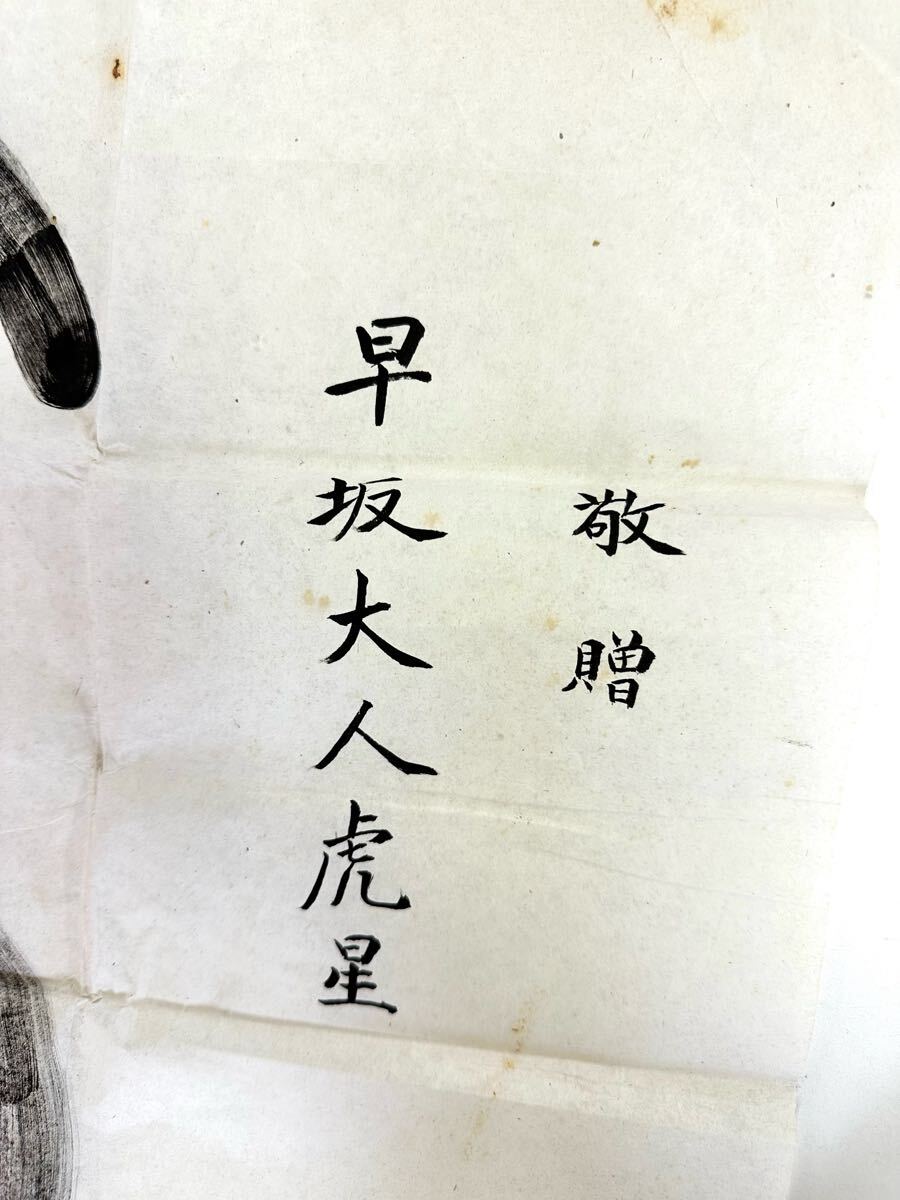 敬贈
早坂大人虎星